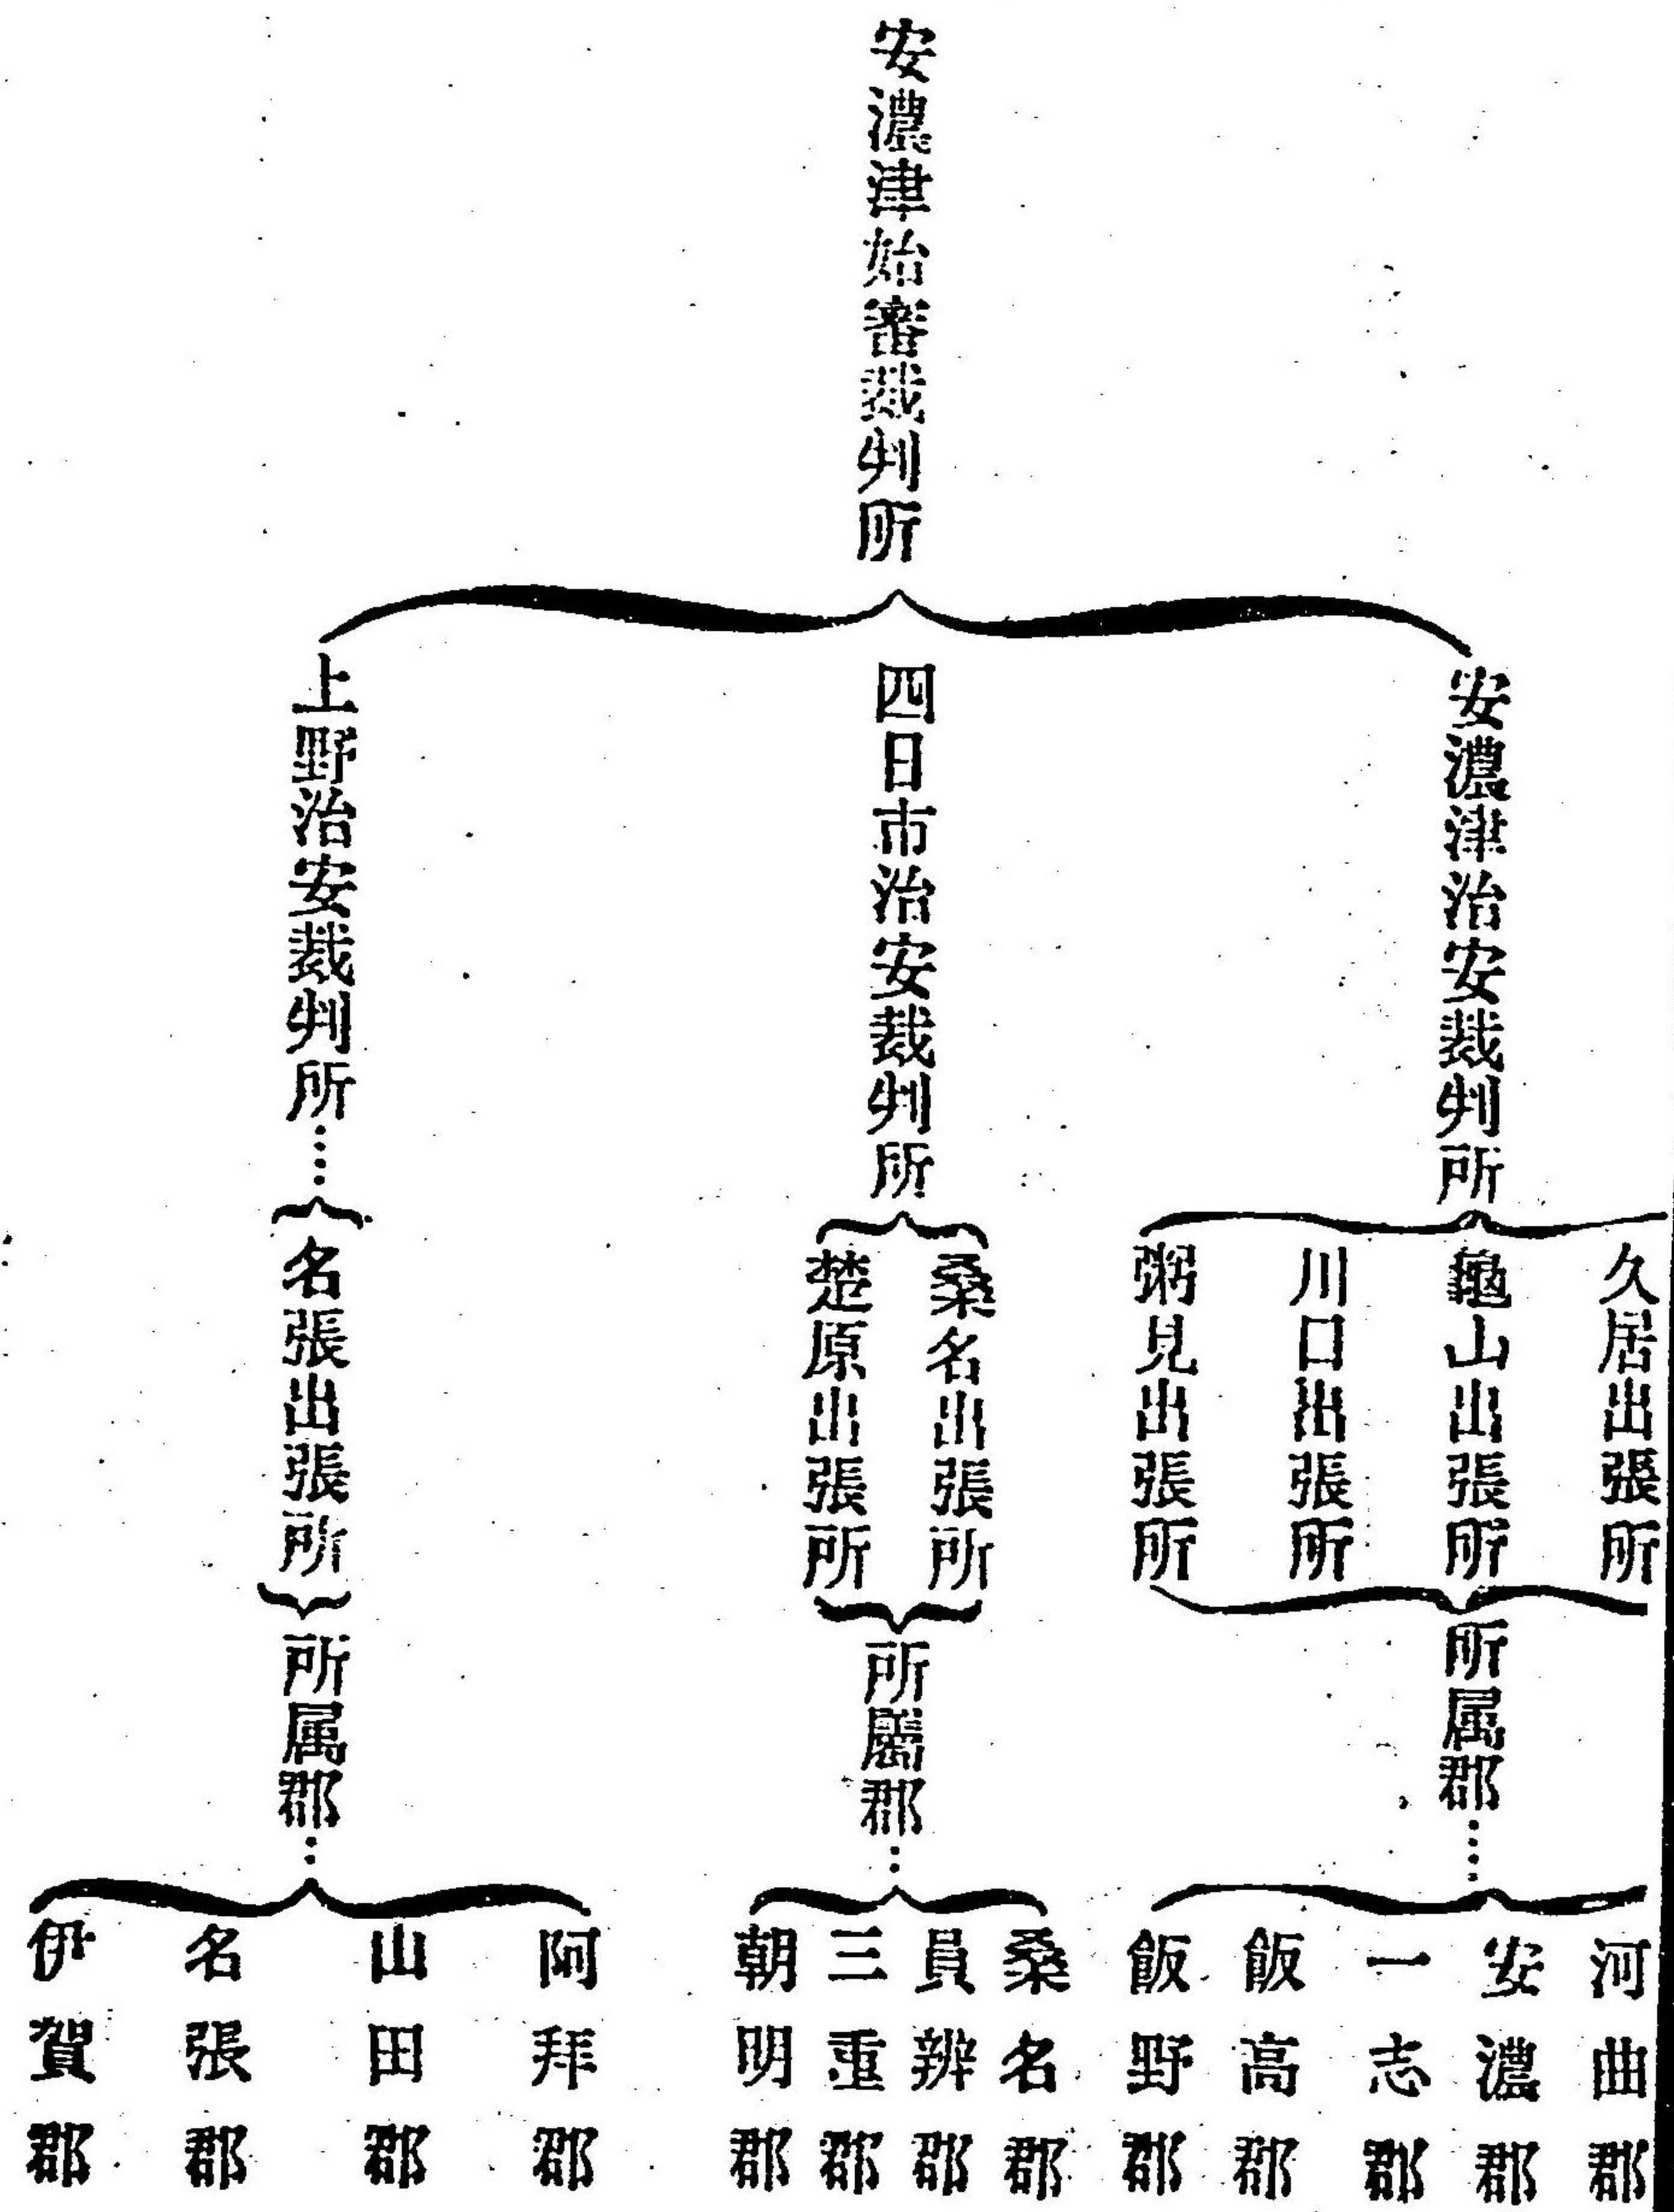 安濃津始審裁判所
安濃津治安裁判所
久居出張所
龜山出張所
川口出張所
粥見出張所
所属郡
河曲郡
安濃郡
一志郡
飯高郡
飯野郡
四日市治安裁判所
桑名出張所
楚原出張所
所屬郡
桑名郡
員辨郡
三重郡
朝明郡
上野治安裁判所
名張出張所
所属郡
阿拜郡
山田郡
名張郡
伊賀郡